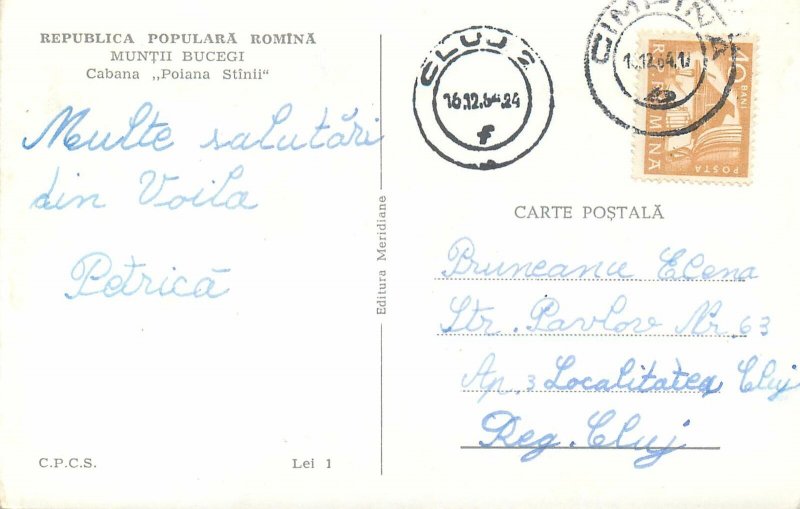 REPUBLICA POPULARĂ ROMÎNĂ
MUNȚII BUCEGI
Cabana „Poiana Stînii"
Multe salutări
din Voila
Petrică
C.P.C.S.
Lei 1
Editura Meridiane
CLUJ 2
16.12.64-24
CIMPINA
.12.64.1
40 BANI
R.P. ROMINA
POSTA
CARTE POȘTALĂ
Pruneanu Elena
Str. Pavlov Nr. 63
Ap. 3 Localitatea Cluj
Reg. Cluj